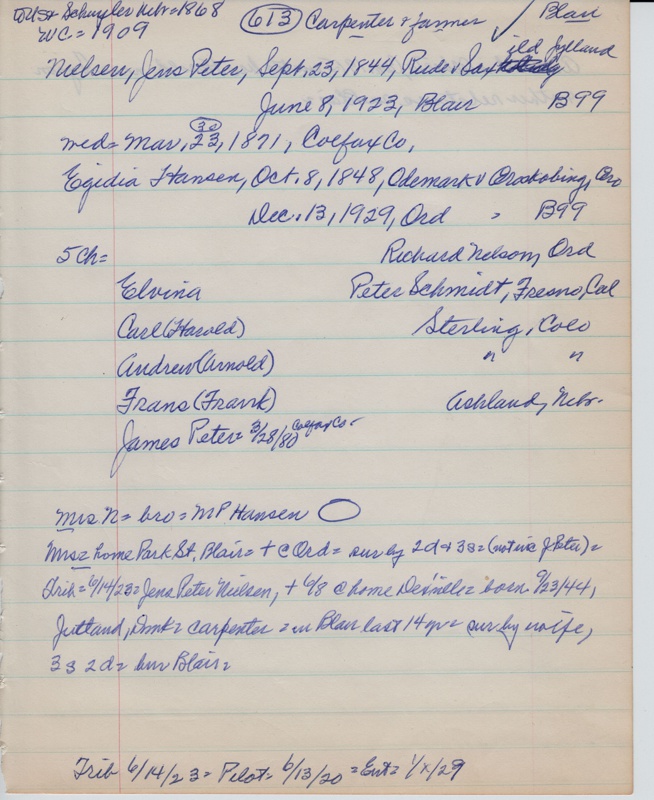 Schuyler Nebr = 1868 613 Carpenter & farmer ✓ Blair
WC = 1909
Nielsen, Jens Peter, Sept. 23, 1844, Rude v Jylland
June 8, 1923, Blair B99
med = Mar. 23, 1871, Colfax Co, 30
Egidia Hansen, Oct. 8, 1848, Odemark v
Dec. 13, 1929, Ord " B99
5 ch = Richard Nelson, Ord
Elvina Peter Schmidt, Fresno, Cal
Carl (Harold) Sterling, Colo
Andrew (Arnold) " "
Frans (Frank) Ashland, Nebr.
James Peter = 3/28/80 Colfax Co.
Mrs N = bro = M P Hansen
Mrs = home Park St, Blair = + @ Ord = sur by 2d + 3s =
Trib = 6/14/23 = Jens Peter Nielsen, + 6/8 @ home = born 9/23/44,
Jutland, Dmk = carpenter = in Blair last 14 yr = sur. by wife,
3s 2d = bur Blair =
Trib 6/14/23 = Pilot = 6/13/20 = Ent = 1/x/29